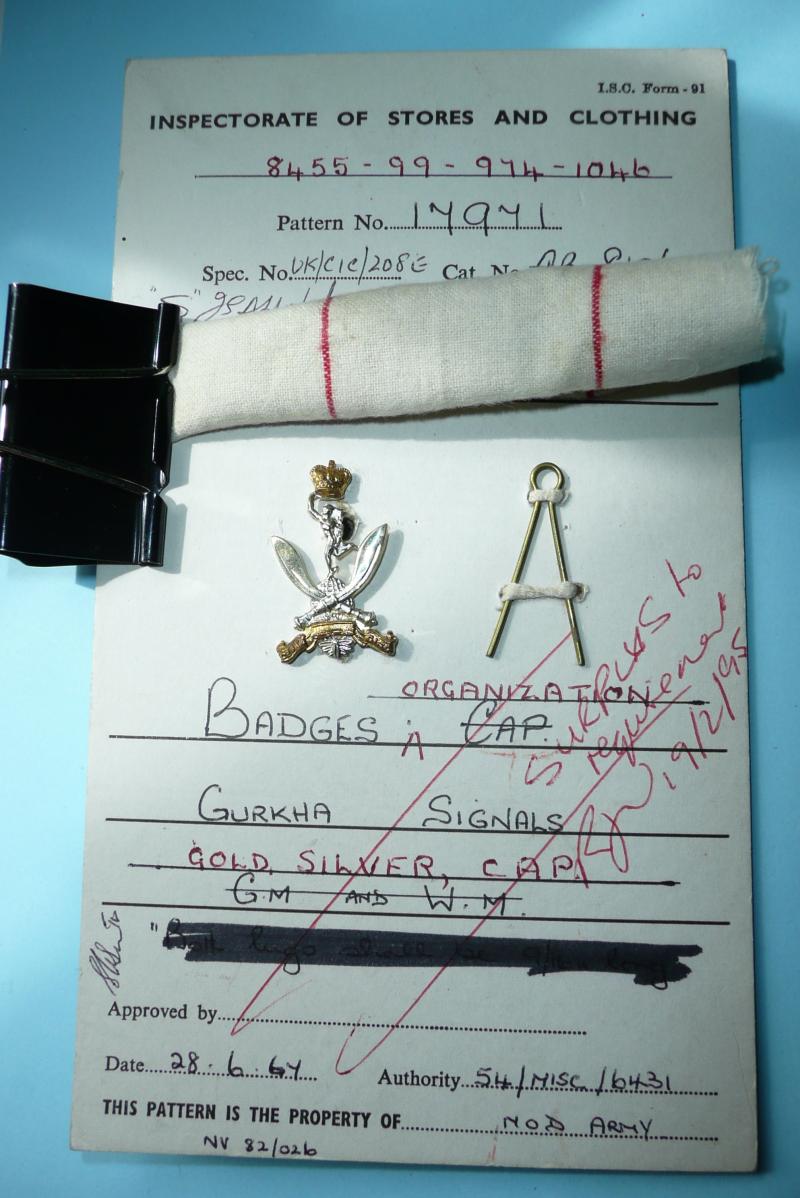 I.S.C. Form - 91
INSPECTORATE OF STORES AND CLOTHING
8455 - 99 - 974 - 1046
Pattern No. 17971
Spec. No. UK/CIC/208E Cat. No.
"S"
ORGANIZATION
BADGES A CAP
Surplus to
19/2/95
GURKHA SIGNALS
GOLD, SILVER, CAP.
G.M AND W.M.
"Both lugs shall be long
Approved by
Date 28.6.64 Authority 54/MISC/6431
THIS PATTERN IS THE PROPERTY OF MOD ARMY
NV 82/026